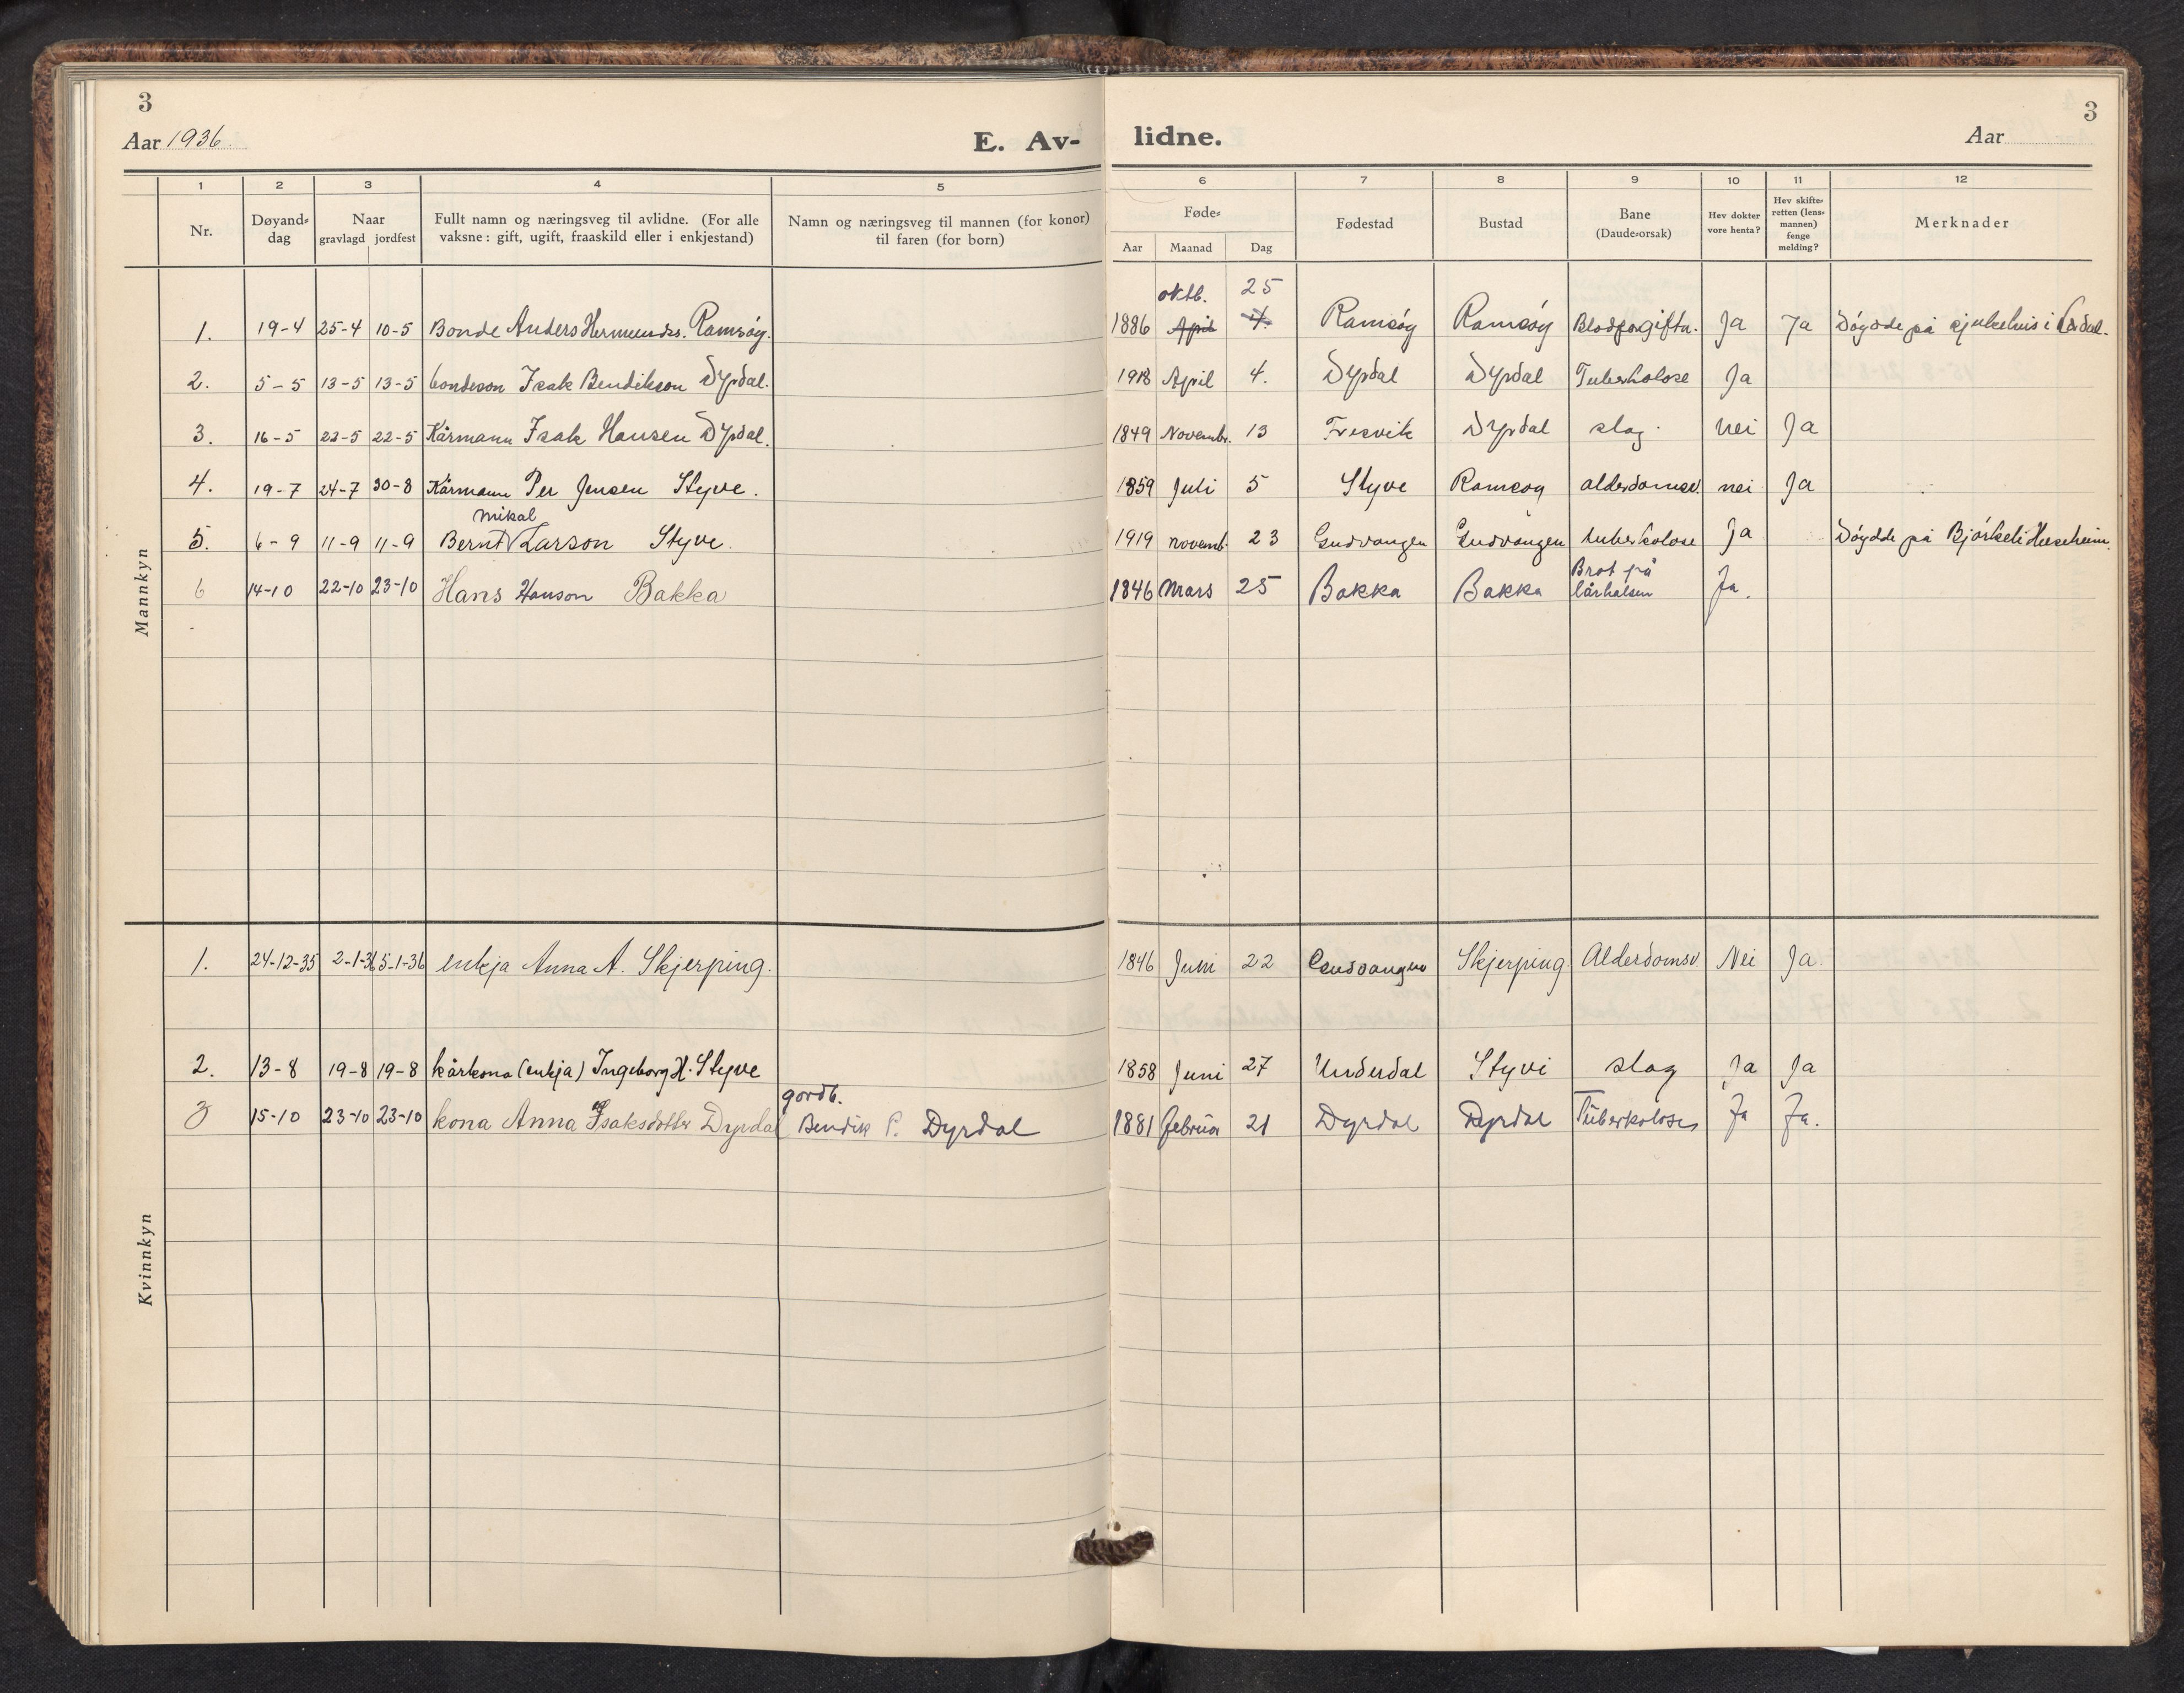 3
Aar 1936.
E. Av-
lidne.
Aar
3
1 2 3 4 5 6 7 8 9 10 11 12
Nr.
Døyand-dag
Naar
gravlagd jordfest
Fullt namn og næringsveg til avlidne. (For alle
vaksne: gift, ugift, fraaskild eller i enkjestand)
Namn og næringsveg til mannen (for konor)
til faren (for born)
Føde-
Aar Maanad Dag
Fødestad
Bustad
Bane
(Daude-orsak)
Hev dokter
vore henta?
Hev skifte-
retten (lens-
mannen)
fenge
melding?
Merknader
Mannkyn
oktb. 25
1. 19-4 25-4 10-5 Bonde Anders Hermundss. Ramsøy. 1886 April 4. Ramsøy Ramsøy Blodforgiftn. Ja Ja Døydde på sjukehus i
2. 5-5 13-5 13-5 bondeson Isak Bendikson Dyrdal. 1918 April 4. Dyrdal Dyrdal Tuberkolose Ja
3. 16-5 22-5 22-5 Kårmann Isak Hansen Dyrdal. 1849 Novembr. 13 Fresvik Dyrdal slag. nei Ja
4. 19-7 24-7 30-8 Kårmann Per Jensen Styve. 1859 Juli 5 Styve Ramsøy alderdomsv. nei Ja
mikal
5. 6-9 11-9 11-9 Bernt √ Larson Styve. 1919 novemb. 23 Gudvangen Gudvangen tuberkolose Ja Døydde på Bjørkeli
Brot på
6 14-10 22-10 23-10 Hans Hanson Bakka 1846 Mars 25 Bakka Bakka lårhalsen Ja.
Kvinnkyn
1. 24-12-35 2-1-36 5-1-36 enkja Anna A. Skjerping. 1846 Juni 22 Gudvangen Skjerping. Alderdomsv. Nei Ja.
2. 13-8 19-8 19-8 kårkona (enkja) Ingeborg H. Styve 1858 Juni 27 Underdal Styvi slag Ja Ja
gardb.
3 15-10 23-10 23-10 kona Anna Isaksdotter Dyrdal Bendik P. Dyrdal 1881 februar 21 Dyrdal Dyrdal Tuberkolose Ja Ja.